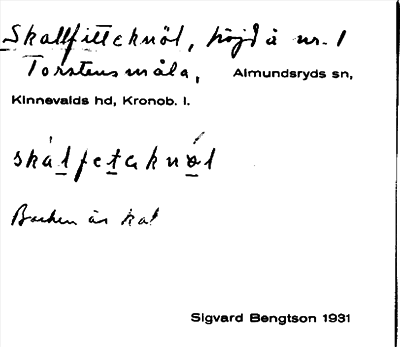 Skallfitteknöl, höjd å nr. 1
Torstensmåla, Almundsryds sn,
Kinnevalds hd, Kronob. l.
skálfetaknøl
Backen är kal
Sigvard Bengtson 1931